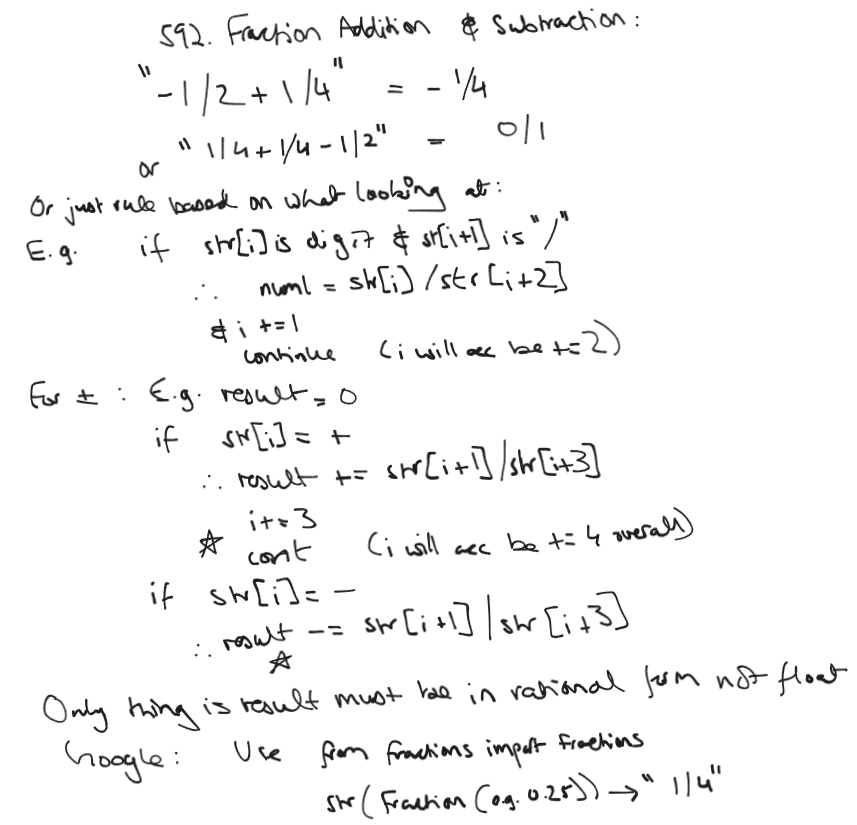 592. Fraction Addition & Subtraction:
"-1/2+1/4" = -1/4
or "1/4+1/4-1/2" = 0/1
Or just rule based on what looking at:
E.g. if str[i] is digit & str[i+1] is "/"
∴ num1 = str[i]/str[i+2]
& i +=1
continue (i will acc be +=2)
For ± : E.g. result = 0
if str[i] = +
∴ result += str[i+1]/str[i+3]
i+=3
☆ cont (i will acc be += 4 overall)
if str[i] = -
∴ result -= str[i+1]/str[i+3]
☆
Only thing is result must be in rational form not float
Google: Use from fractions import Fractions
str(Fraction(e.g. 0.25)) → "1/4"